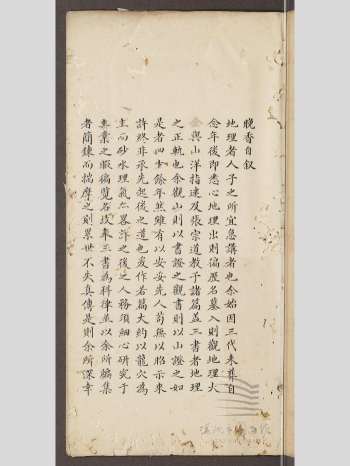 晚香自叙
地理者人子之所宜急講者也余始因三代未葬自
念年後即悉心地理出則徧歷名墓入則觀地理大
與山洋指迷及張宗道教子諸篇盖三書者地理
之正軌也余觀山則以書證之觀書則以山證之如
是者四十餘年然雖有以安先人苟無以昭示來
許終非承先起後之道也爰作若篇大約以龍穴為
主而砂水理氣亦畧詳之後之人務須細心研究于
業之暇徧覽三書為科律並以余所編集
者簡鍊而揣摩之則累世不失真傳是則余所深幸